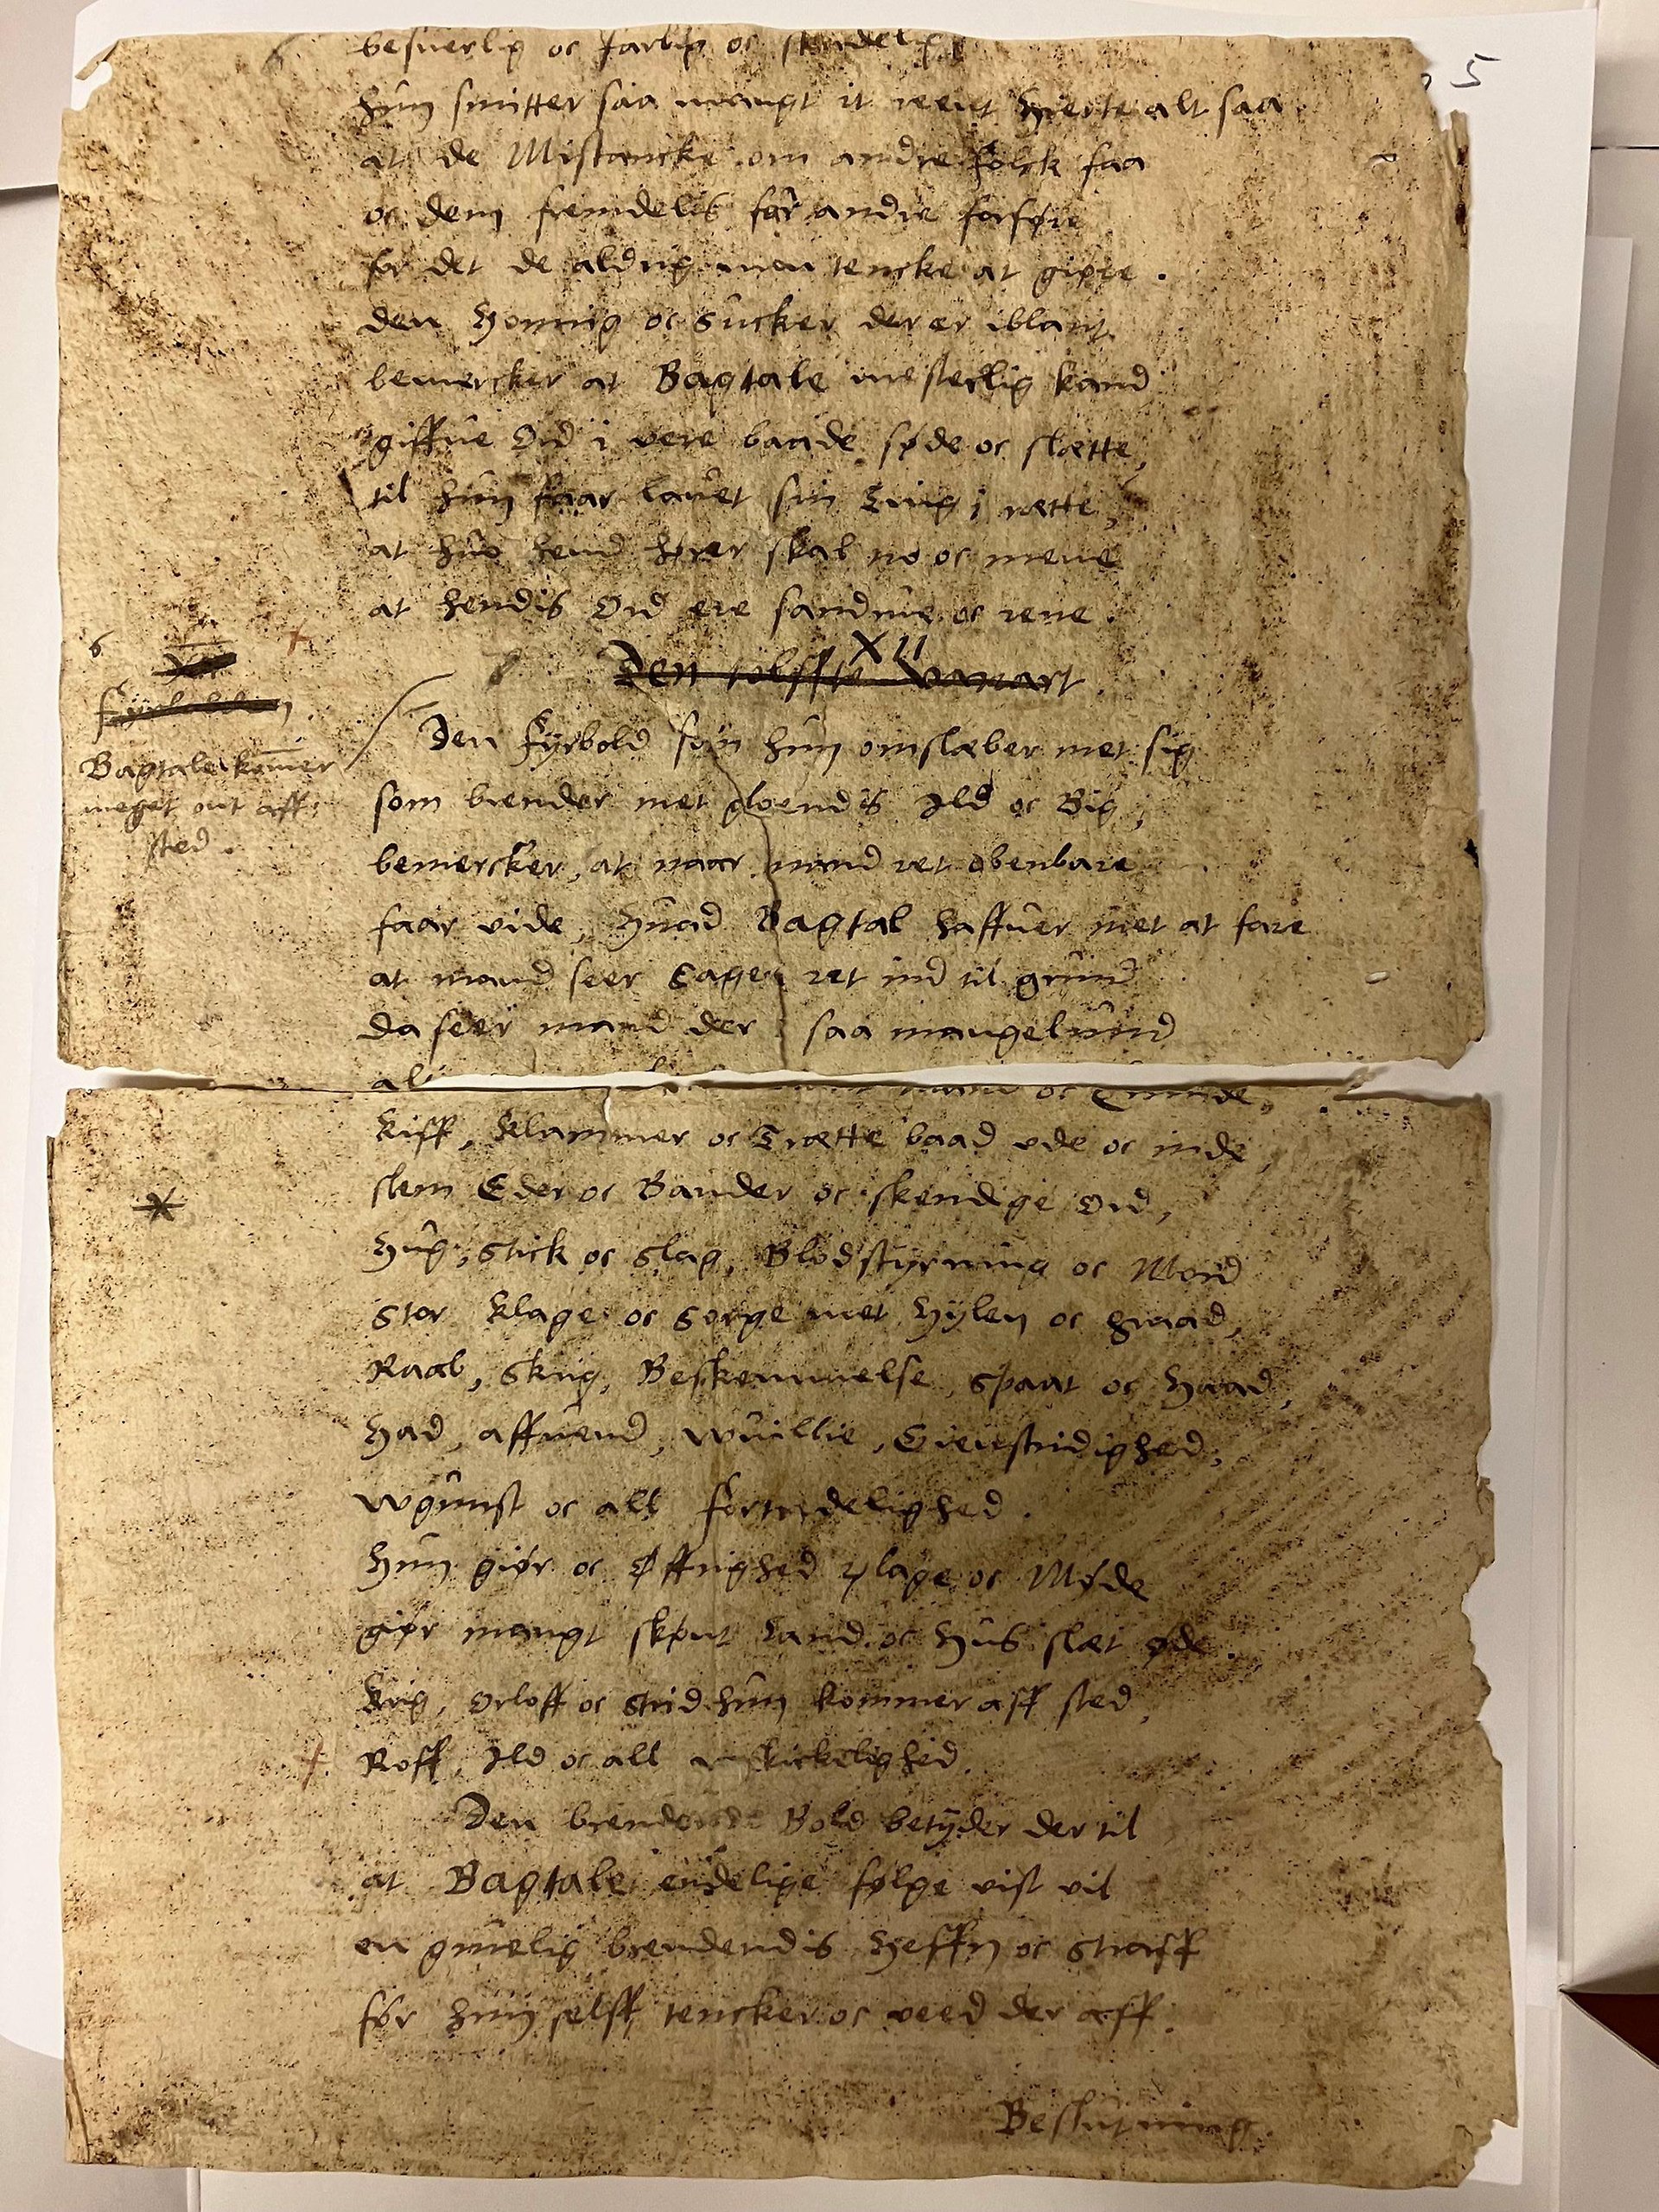 5
besuerlig oc farlig oc skendelig
hun smitter saa mangt it reent Hierte alt saa
at de Mistancke om andre folck faa
oc dem fremdelis for andre forføre
for det de aldrig mon tencke at giøre.
den Honnig oc Sucker der er iblant
bemercker at Bagtale mesterlig kand
giffue Ord i vere baade søde oc slætte,
til hun faar lauet sin Ting i rætte,
at huo hend hører skal no oc mene
at hendis Ord ere sandrue oc rene.
6
XII
Den tolffte Vanart
Bagtale kommer
meget ont aff
sted.
Den Fyrbold som hun omslæber met sig
som brender met gloendis Ild oc Big,
bemercker, at naar mand ret obenbare
faar vide, Huad Bagtal haffuer met at fare
at mand seer Sagen ret ind til grund
da seer mand der saa mangelund
oc Quinde,
Kiff, Klammer oc Trætte baad ude oc inde,
slem Eder oc Bander oc skendige Ord,
Hug, Stick oc Slag, Blodstyrning oc Mord
Stor Klage oc Sorge met Hylen oc Graad,
Raab, Skrig, Beskemmelse, Spaat oc Haad,
Had, affuend, wuillie, Gienstridighed,
wgunst oc all fortredelighed.
Hun giør oc Øffrighed Plage oc Møde
giør mangt skønt Land oc Hus slæt øde.
Krig, Orloff oc Strid hun kommer aff sted,
Roff, Ild oc all uskickelighed.
Den brendende Bold betyder der til
at Bagtale endelige følge vist vil
en gruelig brendendis Heffn oc Straff
før hun selff tencker oc veed der aff.
Beslutning.